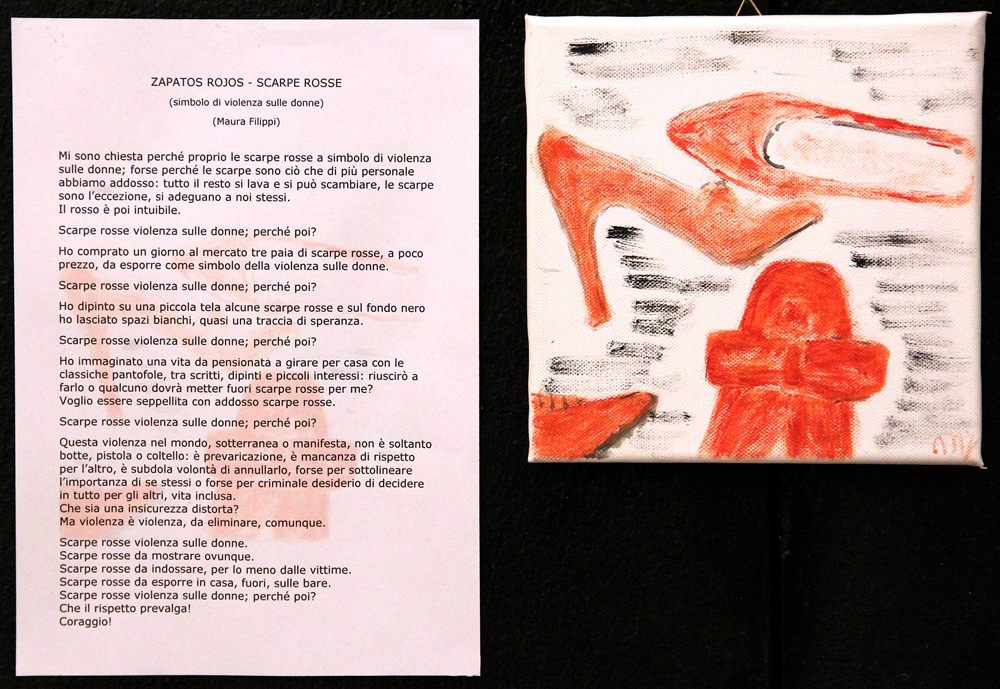 ZAPATOS ROJOS - SCARPE ROSSE
(simbolo di violenza sulle donne)
(Maura Filippi)
Mi sono chiesta perché proprio le scarpe rosse a simbolo di violenza
sulle donne; forse perché le scarpe sono ciò che di più personale
abbiamo addosso: tutto il resto si lava e si può scambiare, le scarpe
sono l'eccezione, si adeguano a noi stessi.
Il rosso è poi intuibile.
Scarpe rosse violenza sulle donne; perché poi?
Ho comprato un giorno al mercato tre paia di scarpe rosse, a poco
prezzo, da esporre come simbolo della violenza sulle donne.
Scarpe rosse violenza sulle donne; perché poi?
Ho dipinto su una piccola tela alcune scarpe rosse e sul fondo nero
ho lasciato spazi bianchi, quasi una traccia di speranza.
Scarpe rosse violenza sulle donne; perché poi?
Ho immaginato una vita da pensionata a girare per casa con le
classiche pantofole, tra scritti, dipinti e piccoli interessi: riuscirò a
farlo o qualcuno dovrà metter fuori scarpe rosse per me?
Voglio essere seppellita con addosso scarpe rosse.
Scarpe rosse violenza sulle donne; perché poi?
Questa violenza nel mondo, sotterranea o manifesta, non è soltanto
botte, pistola o coltello: è prevaricazione, è mancanza di rispetto
per l'altro, è subdola volontà di annullarlo, forse per sottolineare
l'importanza di se stessi o forse per criminale desiderio di decidere
in tutto per gli altri, vita inclusa.
Che sia una insicurezza distorta?
Ma violenza è violenza, da eliminare, comunque.
Scarpe rosse violenza sulle donne.
Scarpe rosse da mostrare ovunque.
Scarpe rosse da indossare, per lo meno dalle vittime.
Scarpe rosse da esporre in casa, fuori, sulle bare.
Scarpe rosse violenza sulle donne; perché poi?
Che il rispetto prevalga!
Coraggio!